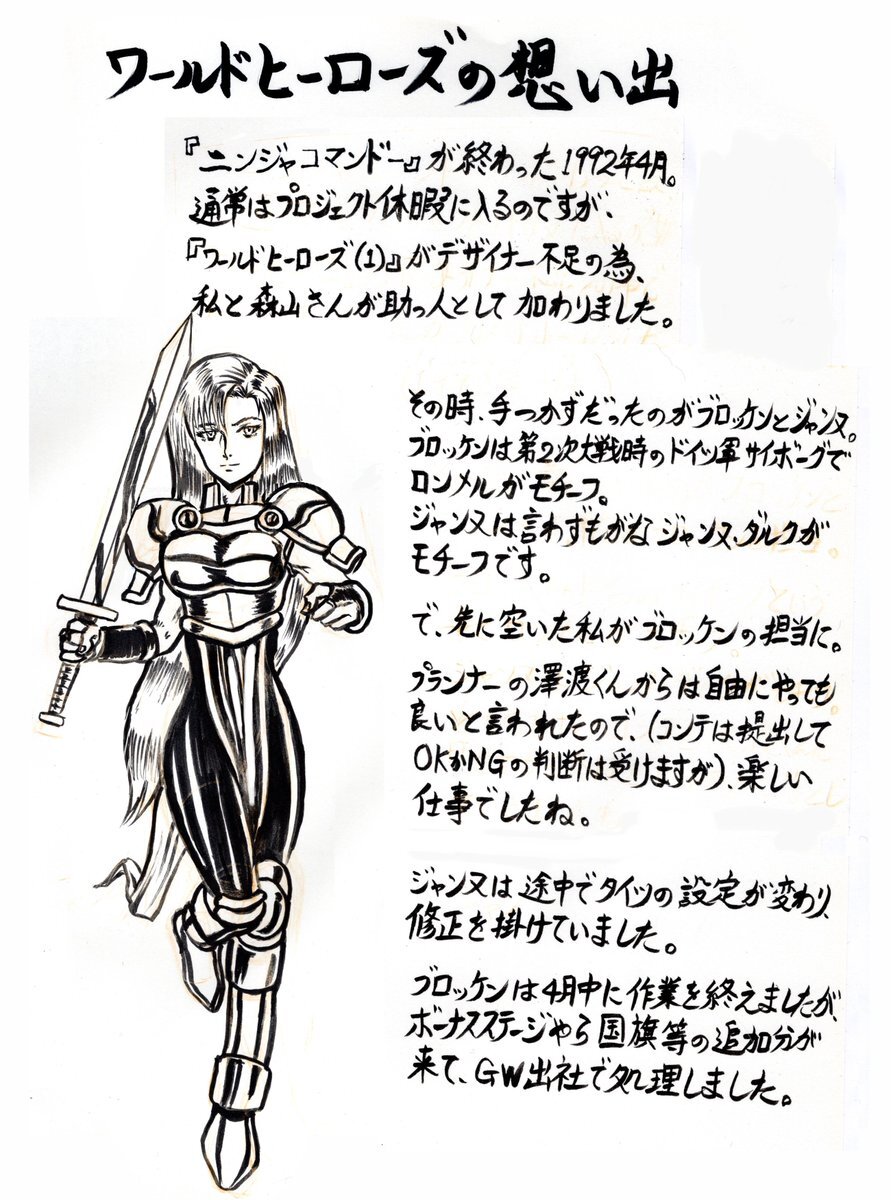 ワールドヒーローズの想い出
『ニンジャコマンドー』が終わった1992年4月。
通常はプロジェクト休暇に入るのですが、
『ワールドヒーローズ(1)』がデザイナー不足の為、
私と森山さんが助っ人として加わりました。
その時、手つかずだったのがブロッケンとジャンヌ。
ブロッケンは第2次大戦時のドイツ軍サイボーグで
ロンメルがモチーフ。
ジャンヌは言わずもがなジャンヌ・ダルクが
モチーフです。
で、先に空いた私がブロッケンの担当に。
プランナーの澤渡くんからは自由にやっても
良いと言われたので、(コンテは提出して
OKかNGの判断は受けますが)、楽しい
仕事でしたね。
ジャンヌは途中でタイツの設定が変わり、
修正を掛けていました。
ブロッケンは4月中に作業を終えましたが、
ボーナスステージやら国旗等の追加分が
来て、GW出社で処理しました。